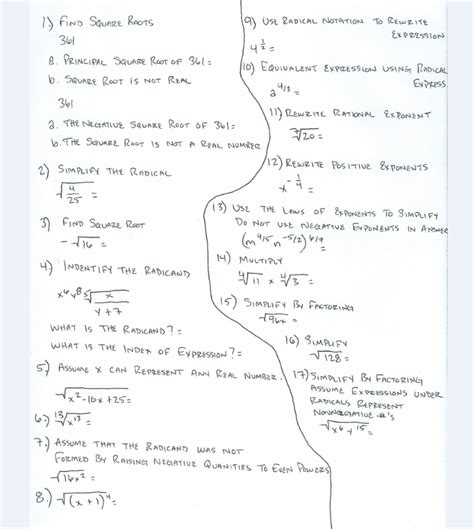 1.) FIND SQUARE ROOTS
361
a. PRINCIPAL SQUARE ROOT OF 361 =
b. SQUARE ROOT IS NOT REAL
361
a. THE NEGATIVE SQUARE ROOT OF 361 =
b. THE SQUARE ROOT IS NOT A REAL NUMBER
2) SIMPLIFY THE RADICAL
√(4/25) =
3) FIND SQUARE ROOT
-√16 =
4) INDENTIFY THE RADICAND
x⁶y⁸ ⁵√(x/(y+7))
WHAT IS THE RADICAND? =
WHAT IS THE INDEX OF EXPRESSION? =
5.) ASSUME X CAN REPRESENT ANN REAL NUMBER.
√(x²-10x+25) =
6.) ¹³√x¹³ =
7.) ASSUME THAT THE RADICAND WAS NOT
FORMED BY RAISING NEGATIVE QUANITIES TO EVEN POWERS
√16x² =
8.) √(x+1)⁴ =
9) USE RADICAL NOTATION TO REWRITE
EXPRESSION
4^(1/2) =
10) EQUIVALENT EXPRESSION USING RADICAL
EXPRESS
a^(4/3) =
11) REWRITE RATIONAL EXPONENT
⁷√20 =
12) REWRITE POSITIVE EXPONENTS
x^(-1/4) =
13) USE THE LAWS OF EXPONENTS TO SIMPLIFY
DO NOT USE NEGATIVE EXPONENTS IN ANSWER
(m^(4/5) n^(-5/2))^(6/7) =
14) MULTIPLY
⁴√11 × ⁴√3 =
15) SIMPLIFY BY FACTORING
√96x =
16) SIMPLIFY
√128 =
17) SIMPLIFY BY FACTORING
ASSUME EXPRESSIONS UNDER
RADICALS REPRESENT
NONNEGATIVE #'S
√x⁶y¹⁵ =